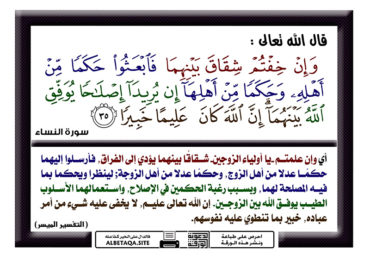 قال الله تعالى :
وَإِنْ خِفْتُمْ شِقَاقَ بَيْنِهِمَا فَٱبْعَثُوا۟ حَكَمًا مِّنْ
أَهْلِهِۦ وَحَكَمًا مِّنْ أَهْلِهَآ إِن يُرِيدَآ إِصْلَـٰحًا يُوَفِّقِ
ٱللَّهُ بَيْنَهُمَآ ۗ إِنَّ ٱللَّهَ كَانَ عَلِيمًا خَبِيرًا ٣٥
سورة النساء
أي وإن علمتم ـ يا أولياء الزوجين ـ شقاقًا بينهما يؤدي إلى الفراق, فأرسلوا إليهما
حكمًا عدلا من أهل الزوج, وحكمًا عدلا من أهل الزوجة; لينظرا ويحكما بما
فيه المصلحة لهما, وبسبب رغبة الحكمين في الإصلاح, واستعمالهما الأسلوب
الطيب يوفق الله بين الزوجين. إن الله تعالى عليم, لا يخفى عليه شيء من أمر
عباده, خبير بما تنطوي عليه نفوسهم.
(التفسير الميسر)
احرص على طباعة
ونشر هذه الورقة
ALBETAQA.SITE